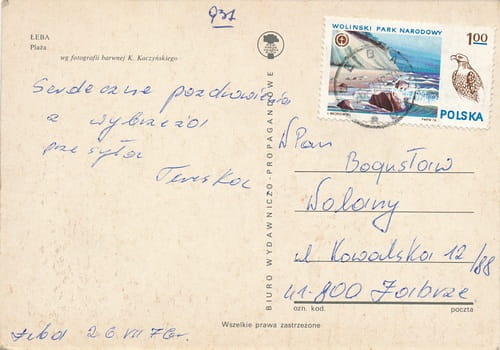 931
ŁEBA
Plaża
wg fotografii barwnej K. Kaczyńskiego
Serdeczne pozdrowienia
z wybrzeża
przesyła
Tereska
Łeba 26.VII 76r.
BIURO WYDAWNICZO-PROPAGANDOWE
WOLIŃSKI PARK NARODOWY
1.00
POLSKA
WPan
Bogusław
Wolany
ul Kowalska 12/88
41-800 Zabrze
ozn. kod. poczta
Wszelkie prawa zastrzeżone